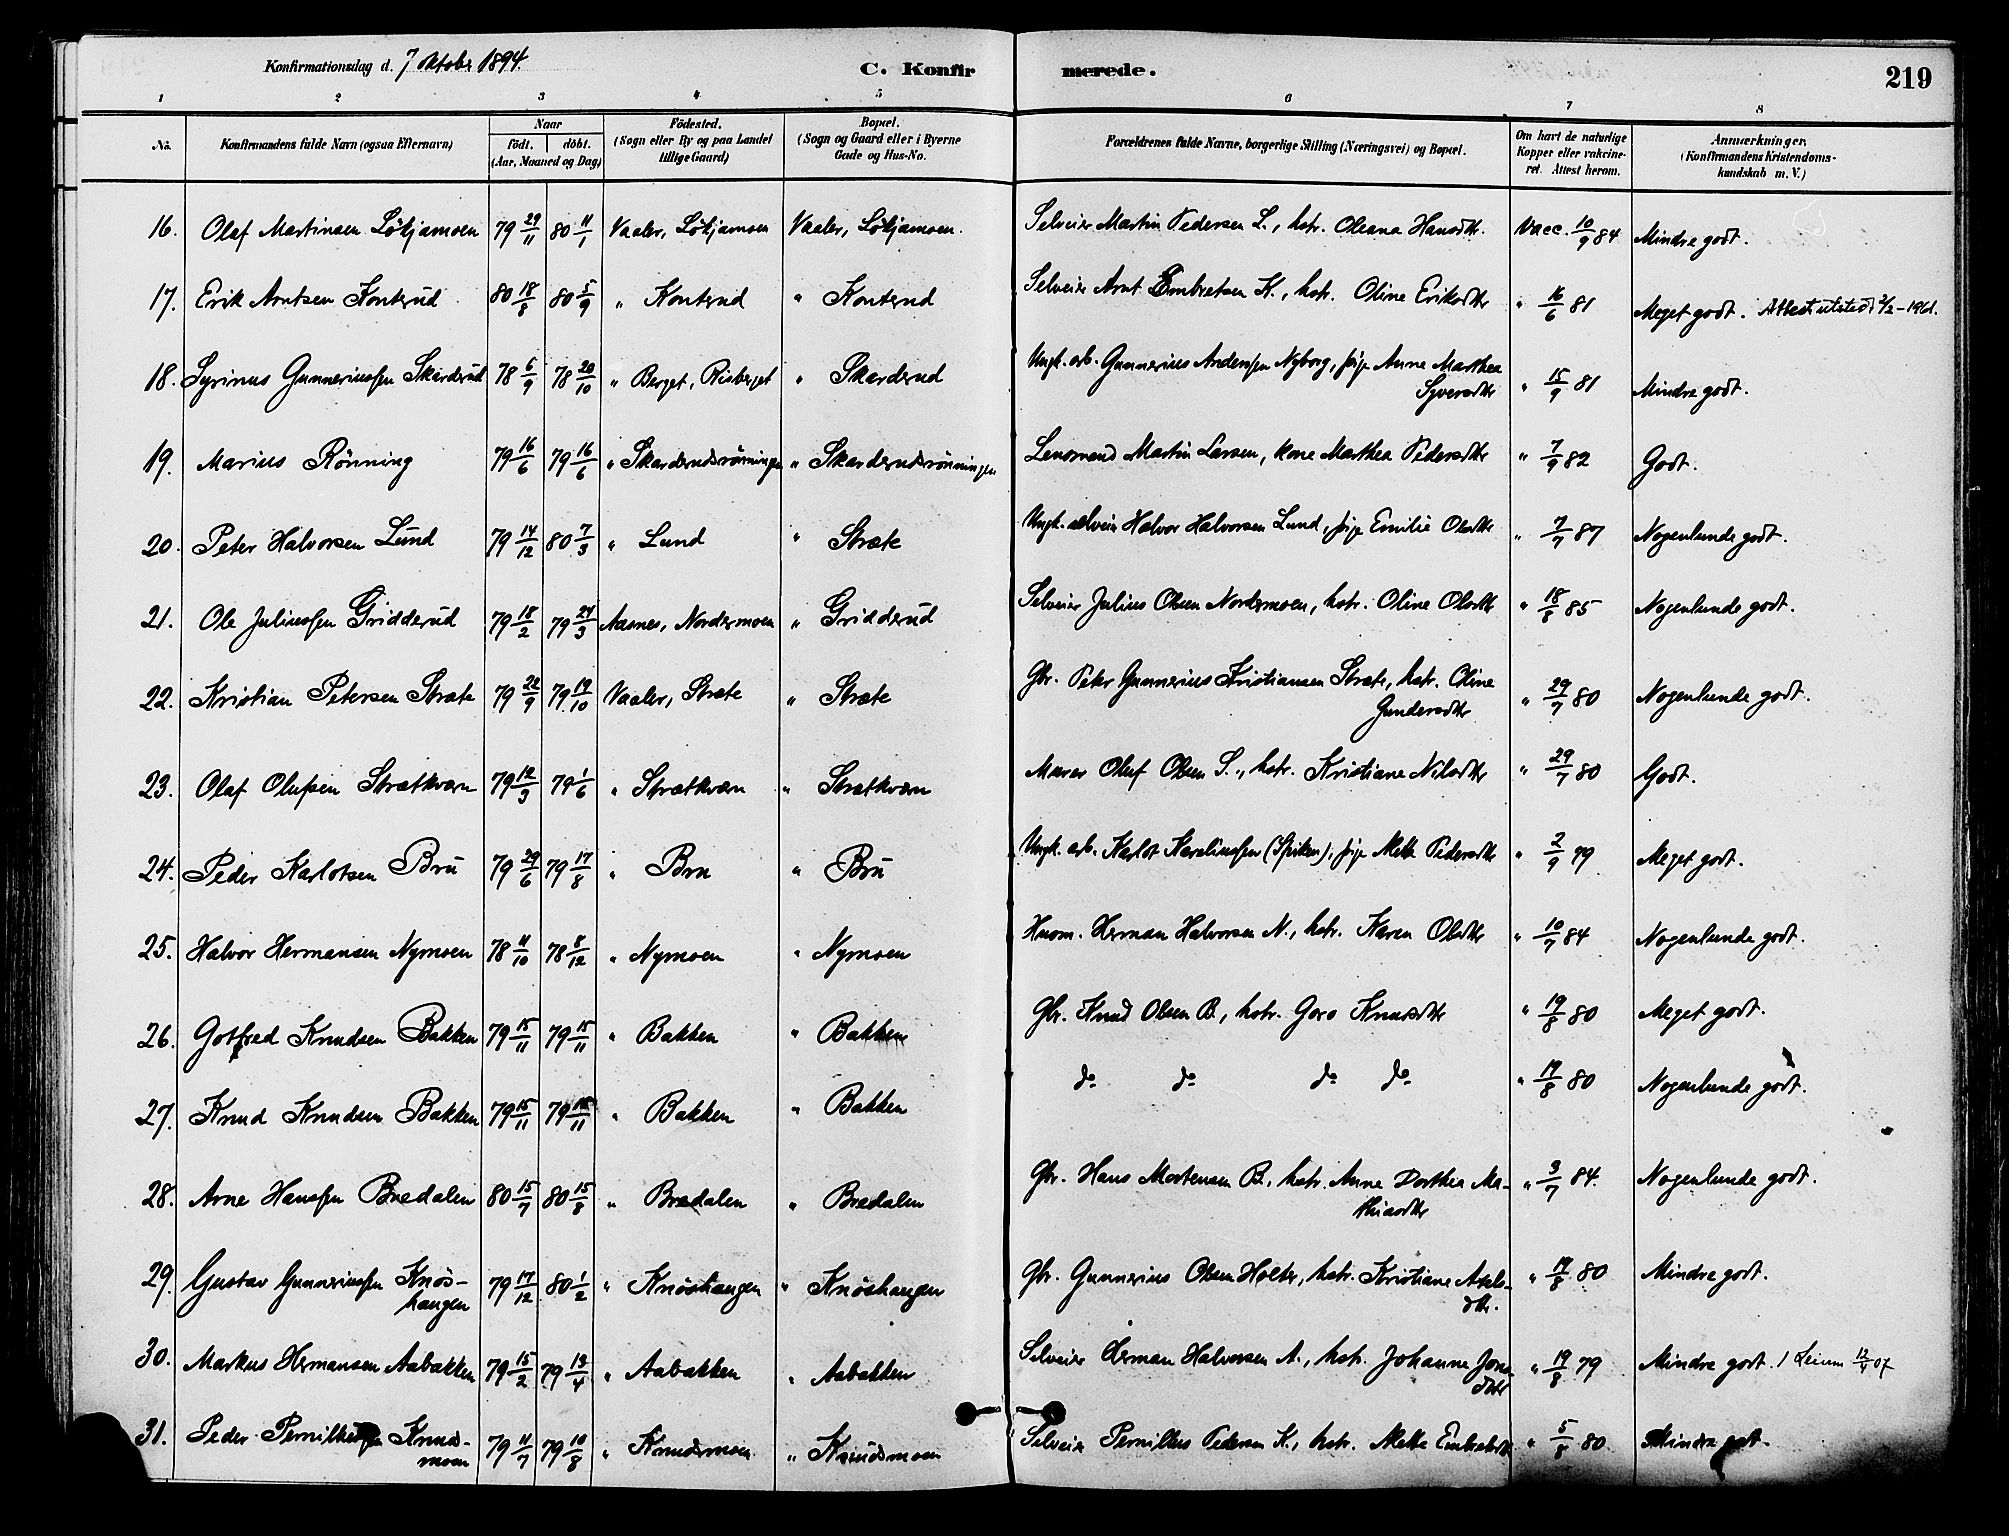 Konfirmationsdag d. 7 Oktober 1894.
C. Konfirmerede.
219
1 2 3 4 5 6 7 8
No. | Konfirmandens fulde Navn (ogsaa Efternavn) | Naar födt. döbt. (Aar, Maaned og Dag) | Födested. (Sogn eller By og paa Landet tillige Gaard) | Bopæl. (Sogn og Gaard eller i Byerne Gade og Hus-No. | Forældrenes fulde Navne, borgerlige Stilling (Næringsvei) og Bopæl. | Om havt de naturlige Kopper eller vakcineret. Attest herom. | Anmærkninger. (Konfirmandens Kristendomskundskab m. V.)
16. Olaf Martinsen Löbjamoen 79 29/11 80 11/1 Vaaler, Löbjamoen Vaaler, Löbjamoen. Selveier Martin Pedersen L., hstr. Oleana Hansdtr. Vacc. 10/9 84 Mindre godt.
17. Erik Arntsen Konterud 80 18/8 80 5/9 " Konterud " Konterud Selveier Arnt Embretsen K., hstr. Oline Eriksdtr " 16/6 81 Meget godt. Attest utstedt 2/2-1961.
18. Syrinus Gunneriussen Skarderud 78 6/9 78 20/10 " Berget, Risberget " Skarderud Ungk. arb. Gunnerius Anderssen Nyborg, pige Anne Marthea Syversdtr " 15/9 81 Mindre godt.
19. Marius Rönning 79 16/6 79 16/6 " Skarderudsrönningen " Skarderudsrönningen Lensmand Martin Larsen, kone Marthea Pedersdtr " 7/9 82 Godt.
20. Peter Halvorsen Lund 79 14/12 80 7/3 " Lund " Stræte Ungk. selveier Halvor Halvorsen Lund, pige Emilie Olsdtr " 7/7 87 Nogenlunde godt.
21. Ole Juliussen Gridderud 79 18/2 79 24/3 Aasnes, Nordermoen " Gridderud Selveier Julius Olsen Nordermoen, hstr. Oline Olsdtr " 18/8 85 Nogenlunde godt.
22. Kristian Petersen Stræte 79 22/9 79 19/10 Vaaler, Stræte " Stræte Gbr. Peter Gunnerius Kristiansen Stræte, hstr. Oline Gundersdtr " 29/7 80 Nogenlunde godt.
23. Olaf Olufsen Strætkværn 79 12/3 79 1/6 " Strætkværn " Strætkværn Murer Oluf Olsen S., hstr. Kristiane Nilsdtr " 29/7 80 Godt.
24. Peder Karlotsen Bru 79 29/6 79 17/8 " Bru " Bru Ungk. arb. Karlot Kareliussen (Spiken), pige Mette Pedersdtr " 2/9 79 Meget godt.
25. Halvor Hermansen Nymoen 78 11/10 78 8/12 " Nymoen " Nymoen Husm. Herman Halvorsen N., hstr. Karen Olsdtr " 10/7 84 Nogenlunde godt.
26. Gotfred Knudsen Bakken 79 15/11 79 15/11 " Bakken " Bakken Gbr. Knud Olsen B., hstr. Goro Knutsdtr " 19/8 80 Meget godt.
27. Knud Knudsen Bakken 79 15/11 79 15/11 " Bakken " Bakken do do do do " 19/8 80 Nogenlunde godt.
28. Arne Hanssen Bredalen 80 15/7 80 15/8 " Bredalen " Bredalen Gbr. Hans Mortensen B., hstr. Anne Dorthea Mathiasdtr " 3/7 84. Nogenlunde godt.
29. Gustav Gunneriussen Knöshaugen 79 17/12 80 1/2 " Knöshaugen " Knöshaugen Gbr. Gunnerius Olsen Holter, hstr. Kristiane Axelsdtr. " 19/8 80 Mindre godt.
30. Markus Hermansen Aabakken 79 15/2 79 13/4 " Aabakken " Aabakken Selveier Herman Halvorsen A., hstr. Johanne Jonsdtr " 19/8 79 Mindre godt. 12/4 07
31. Peder Pernilliussen Knudsmoen 79 11/7 79 10/8 " Knudsmoen " Knudsmoen Selveier Pernillus Pedersen K., hstr. Mette Embretsdtr " 5/8 80 Mindre godt.